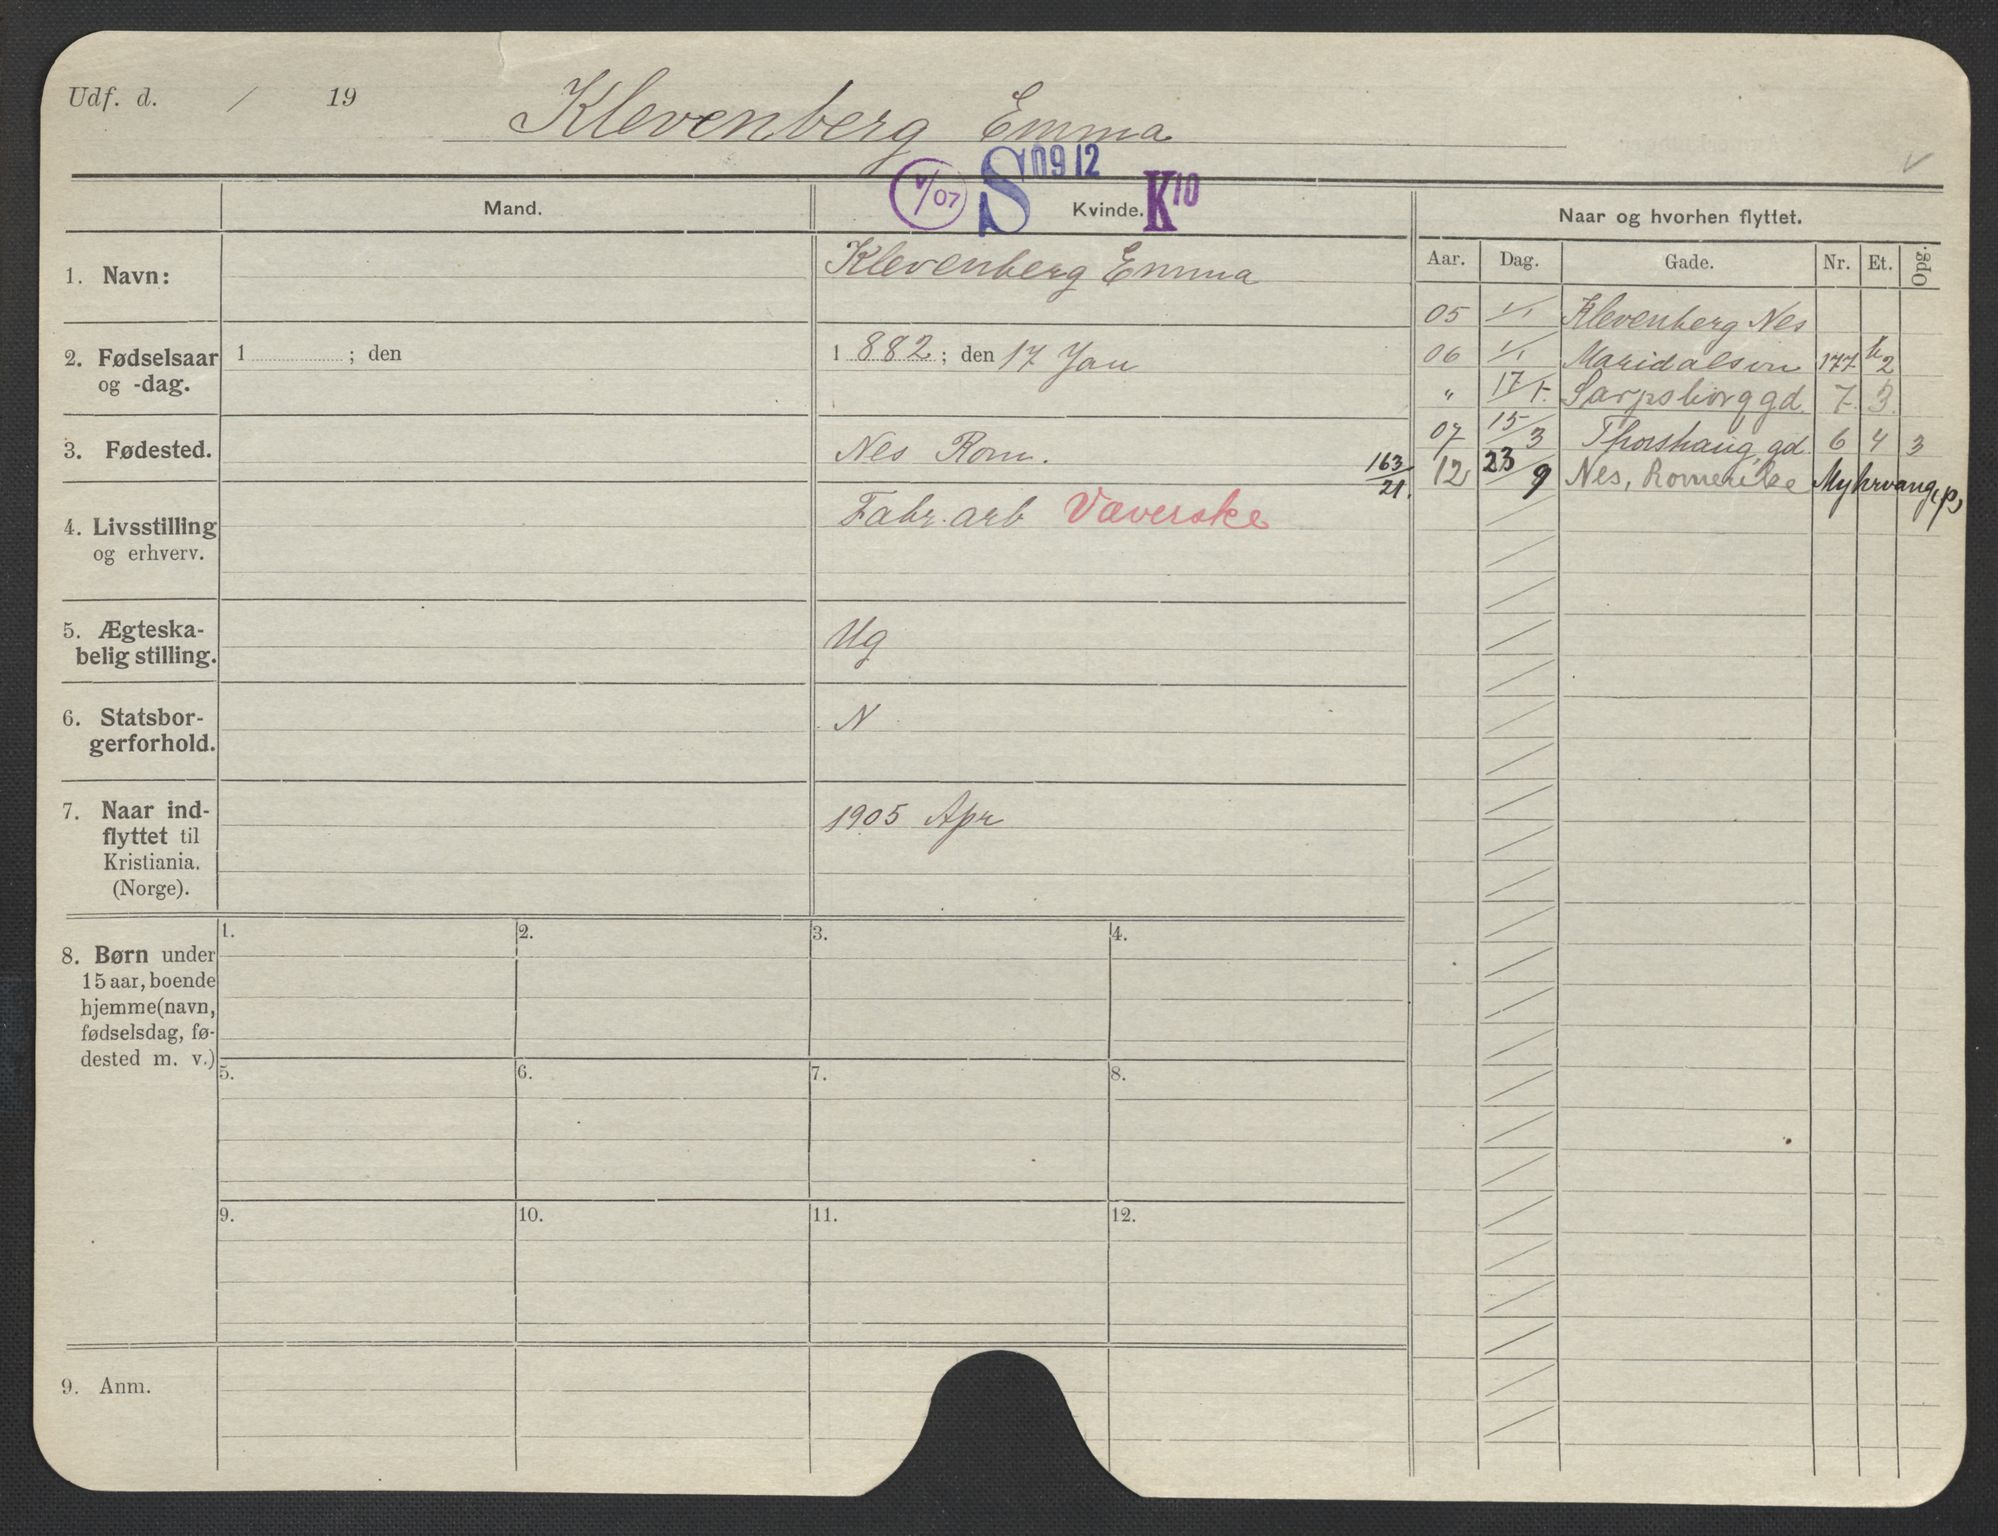 Udf. d. / 19
Klevenberg Emma
V/07 S 0912 K10
Mand.
Kvinde.
Naar og hvorhen flyttet.
Aar. Dag. Gade. Nr. Et. Opg.
1. Navn:
Klevenberg Emma
2. Fødselsaar
og -dag.
1 ; den
1 882 ; den 17 Jan
3. Fødested.
Nes Rom.
4. Livsstilling
og erhverv.
Fabr. arb Væverske
5. Ægteska-
belig stilling.
Ug
6. Statsbor-
gerforhold.
N
7. Naar ind-
flyttet til
Kristiania.
(Norge).
1905 Apr
05 1/1 Klevenberg Nes
06 1/1 Maridalsvn 177 2
" 17/1 Sarpsborggd. 7 3
07 15/3 Thorshauggd. 6 4 3
163/21. 12 23/9 Nes, Romerike Myhrvang, p,
8. Børn under
15 aar, boende
hjemme (navn,
fødselsdag, fø-
dested m. v.)
1. 2. 3. 4.
5. 6. 7. 8.
9. 10. 11. 12.
9. Anm.